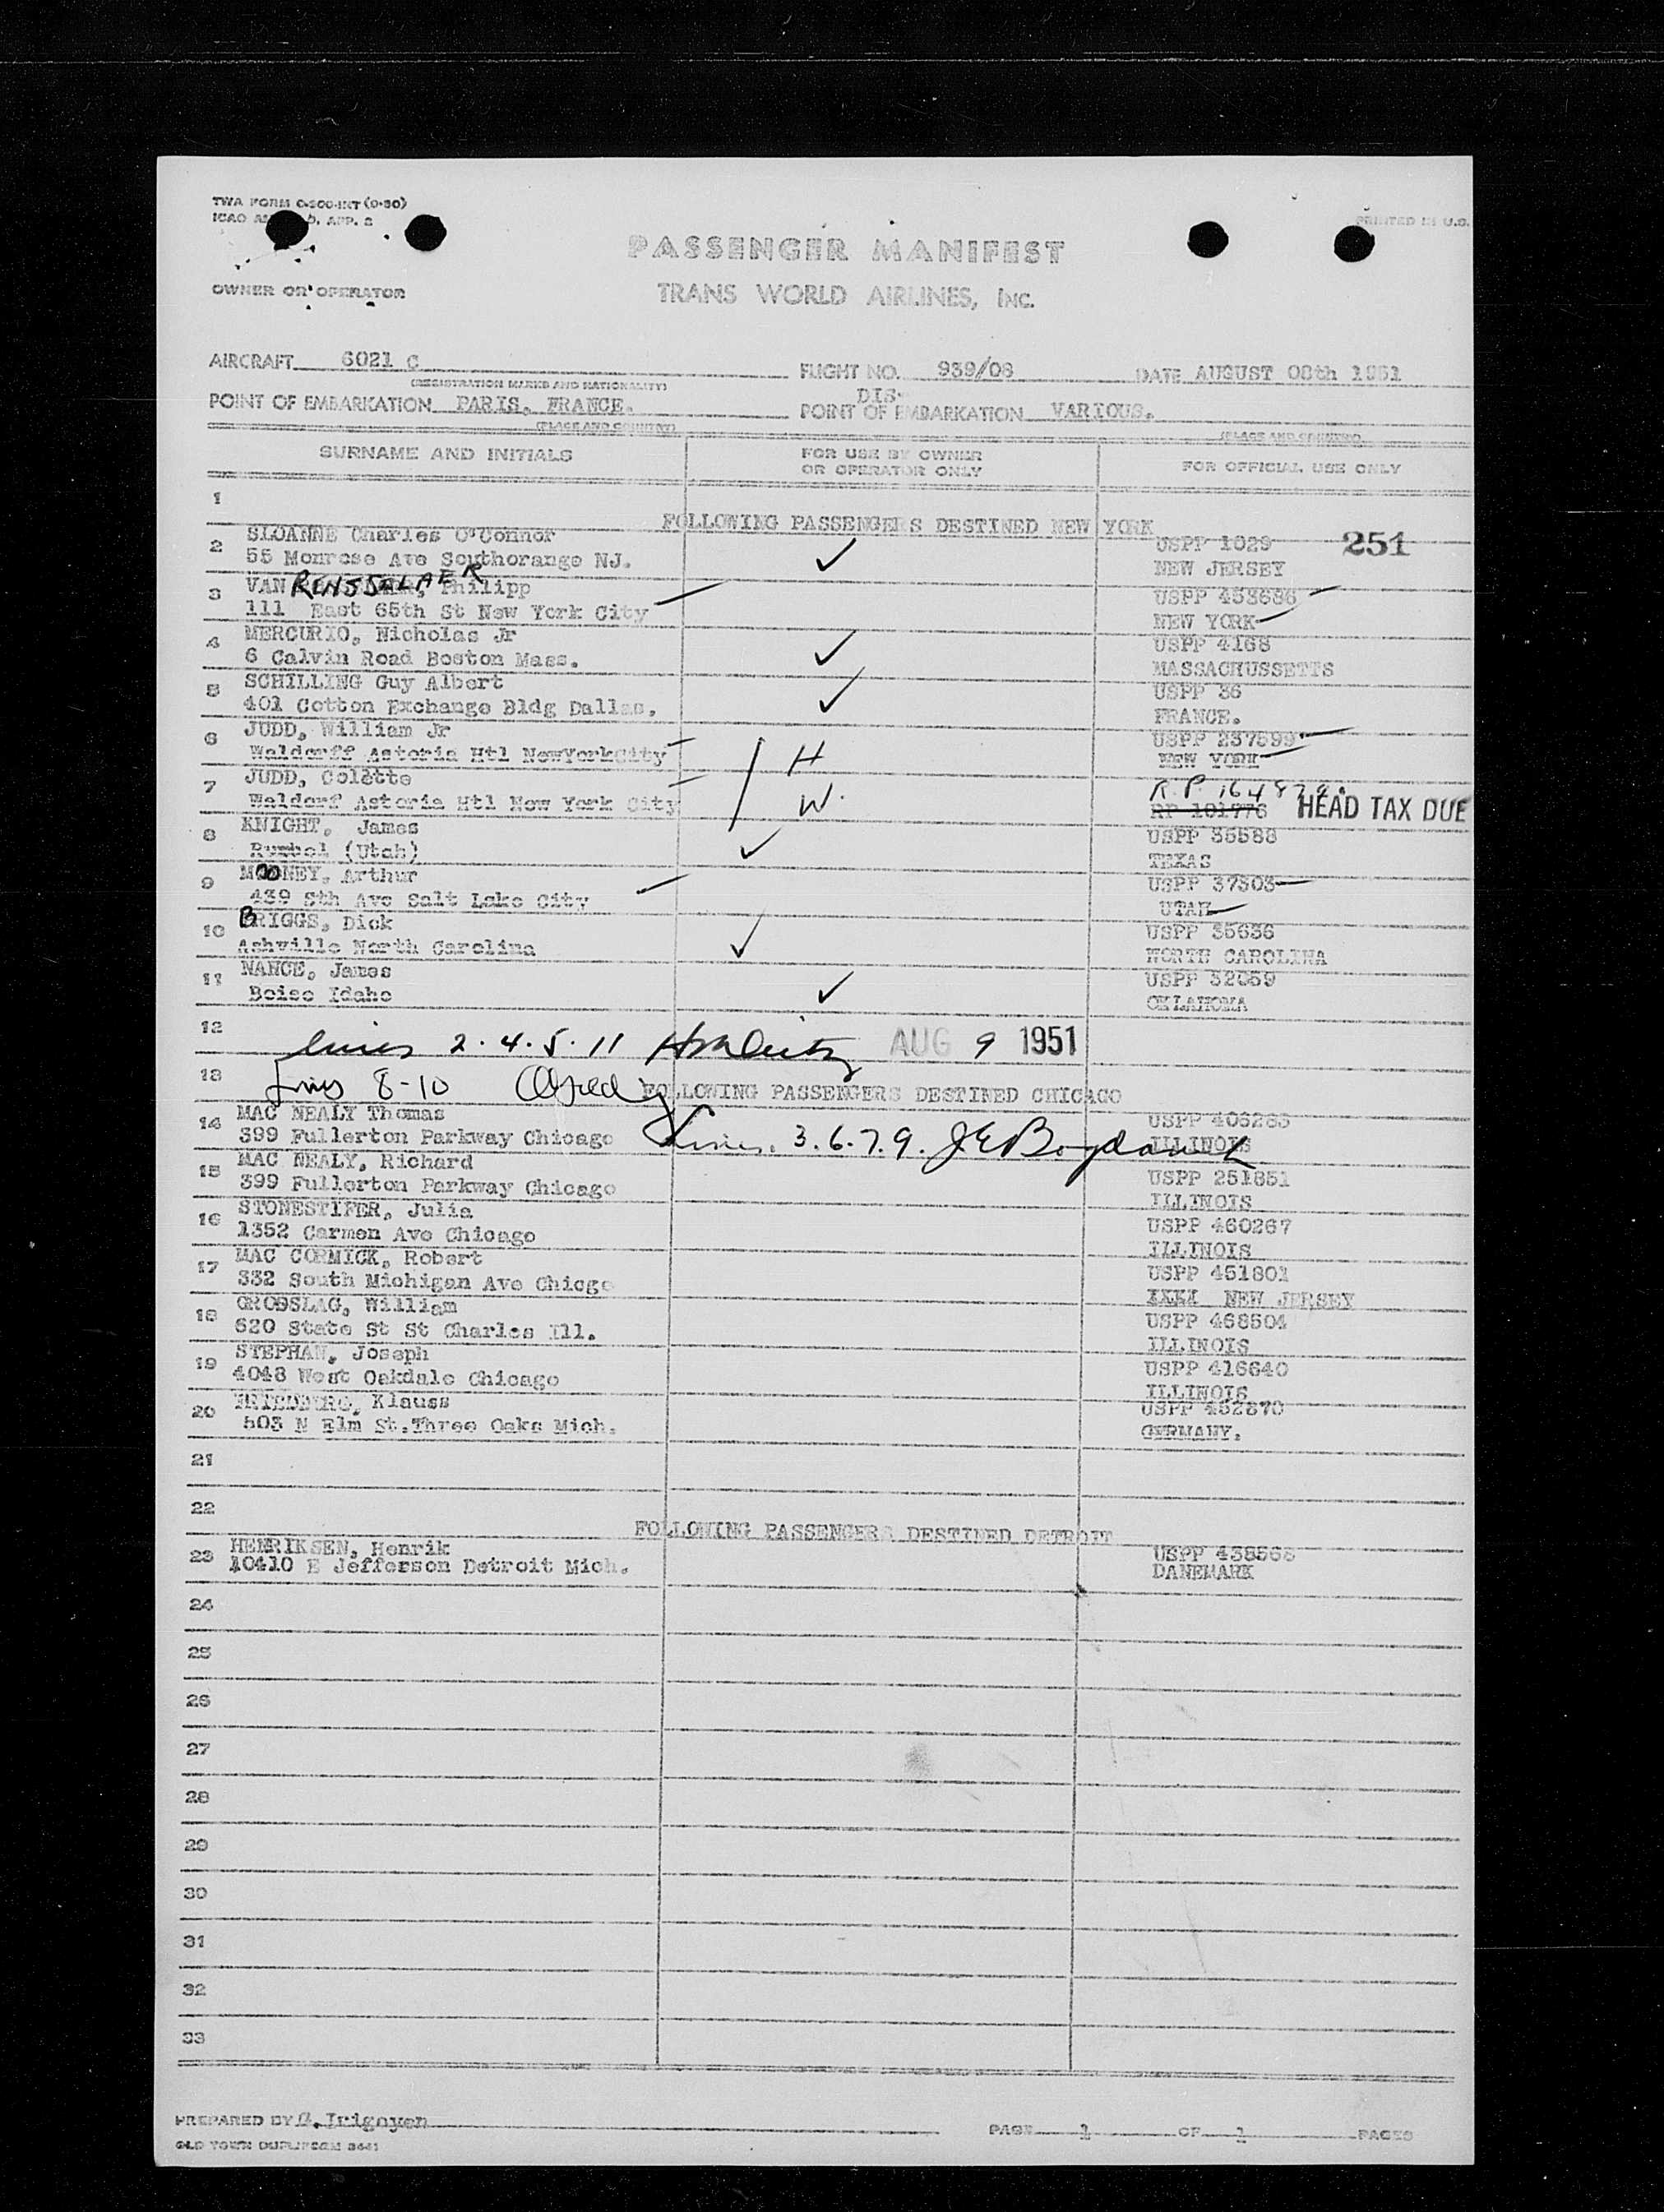 TWA FORM
ICAO
PRINTED IN U.S.
PASSENGER MANIFEST
OWNER OR OPERATOR
TRANS WORLD AIRLINES, INC.
AIRCRAFT 6021 C FLIGHT NO. 939/08 DATE AUGUST 08th 1951
(REGISTRATION MARKS AND NATIONALITY)
DIS-
POINT OF EMBARKATION PARIS, FRANCE. POINT OF EMBARKATION VARIOUS.
(PLACE AND COUNTRY) (PLACE AND COUNTRY)
SURNAME AND INITIALS FOR USE BY OWNER OR OPERATOR ONLY FOR OFFICIAL USE ONLY
1
FOLLOWING PASSENGERS DESTINED NEW YORK
2 SLOANNE Charles O'Connor USPP 1029 251
55 Monrose Ave Southorange NJ. NEW JERSEY
3 VAN RENSSALAER Philipp USPP 453686
111 East 65th St New York City NEW YORK
4 MERCURIO, Nicholas Jr USPP 4168
6 Calvin Road Boston Mass. MASSACHUSSETTS
5 SCHILLING Guy Albert USPP 36
401 Cotton Exchange Bldg Dallas, FRANCE.
6 JUDD, William Jr USPP 237599
Waldorff Astoria Htl NewYorkCity H NEW YORK
7 JUDD, Colette R.P.
Waldorf Astoria Htl New York City W. RP 101776 HEAD TAX DUE
8 KNIGHT, James USPP 35588
(Utah) TEXAS
9 MOONEY, Arthur USPP 37303
439 8th Ave Salt Lake City UTAH
10 BRIGGS, Dick USPP 35636
Ashville North Carolina NORTH CAROLINA
11 NANCE, James USPP 32059
Boise Idaho OKLAHOMA
12
lines 2.4.5.11 AUG 9 1951
13 Lines 8-10 FOLLOWING PASSENGERS DESTINED CHICAGO
14 MAC NEALY Thomas USPP 406265
399 Fullerton Parkway Chicago Lines. 3.6.7.9. ILLINOIS
15 MAC NEALY, Richard USPP 251851
399 Fullerton Parkway Chicago ILLINOIS
16 STONESTIFER, Julia USPP 460267
1352 Carmen Ave Chicago ILLINOIS
17 MAC CORMICK, Robert USPP 451801
332 South Michigan Ave Chicgo NEW JERSEY
18 GROSSLAG, William USPP 468504
620 State St St Charles Ill. ILLINOIS
19 STEPHAN, Joseph USPP 416640
4048 West Oakdale Chicago ILLINOIS
20 Klauss USPP 452870
503 N Elm St.Three Oaks Mich. GERMANY.
21
22
FOLLOWING PASSENGERS DESTINED DETROIT
23 HENRIKSEN, Henrik USPP 438568
10410 E Jefferson Detroit Mich. DANEMARK
24
25
26
27
28
29
30
31
32
33
PREPARED BY Irigoyen PAGE 1 OF 1 PAGES
OLD TOWN